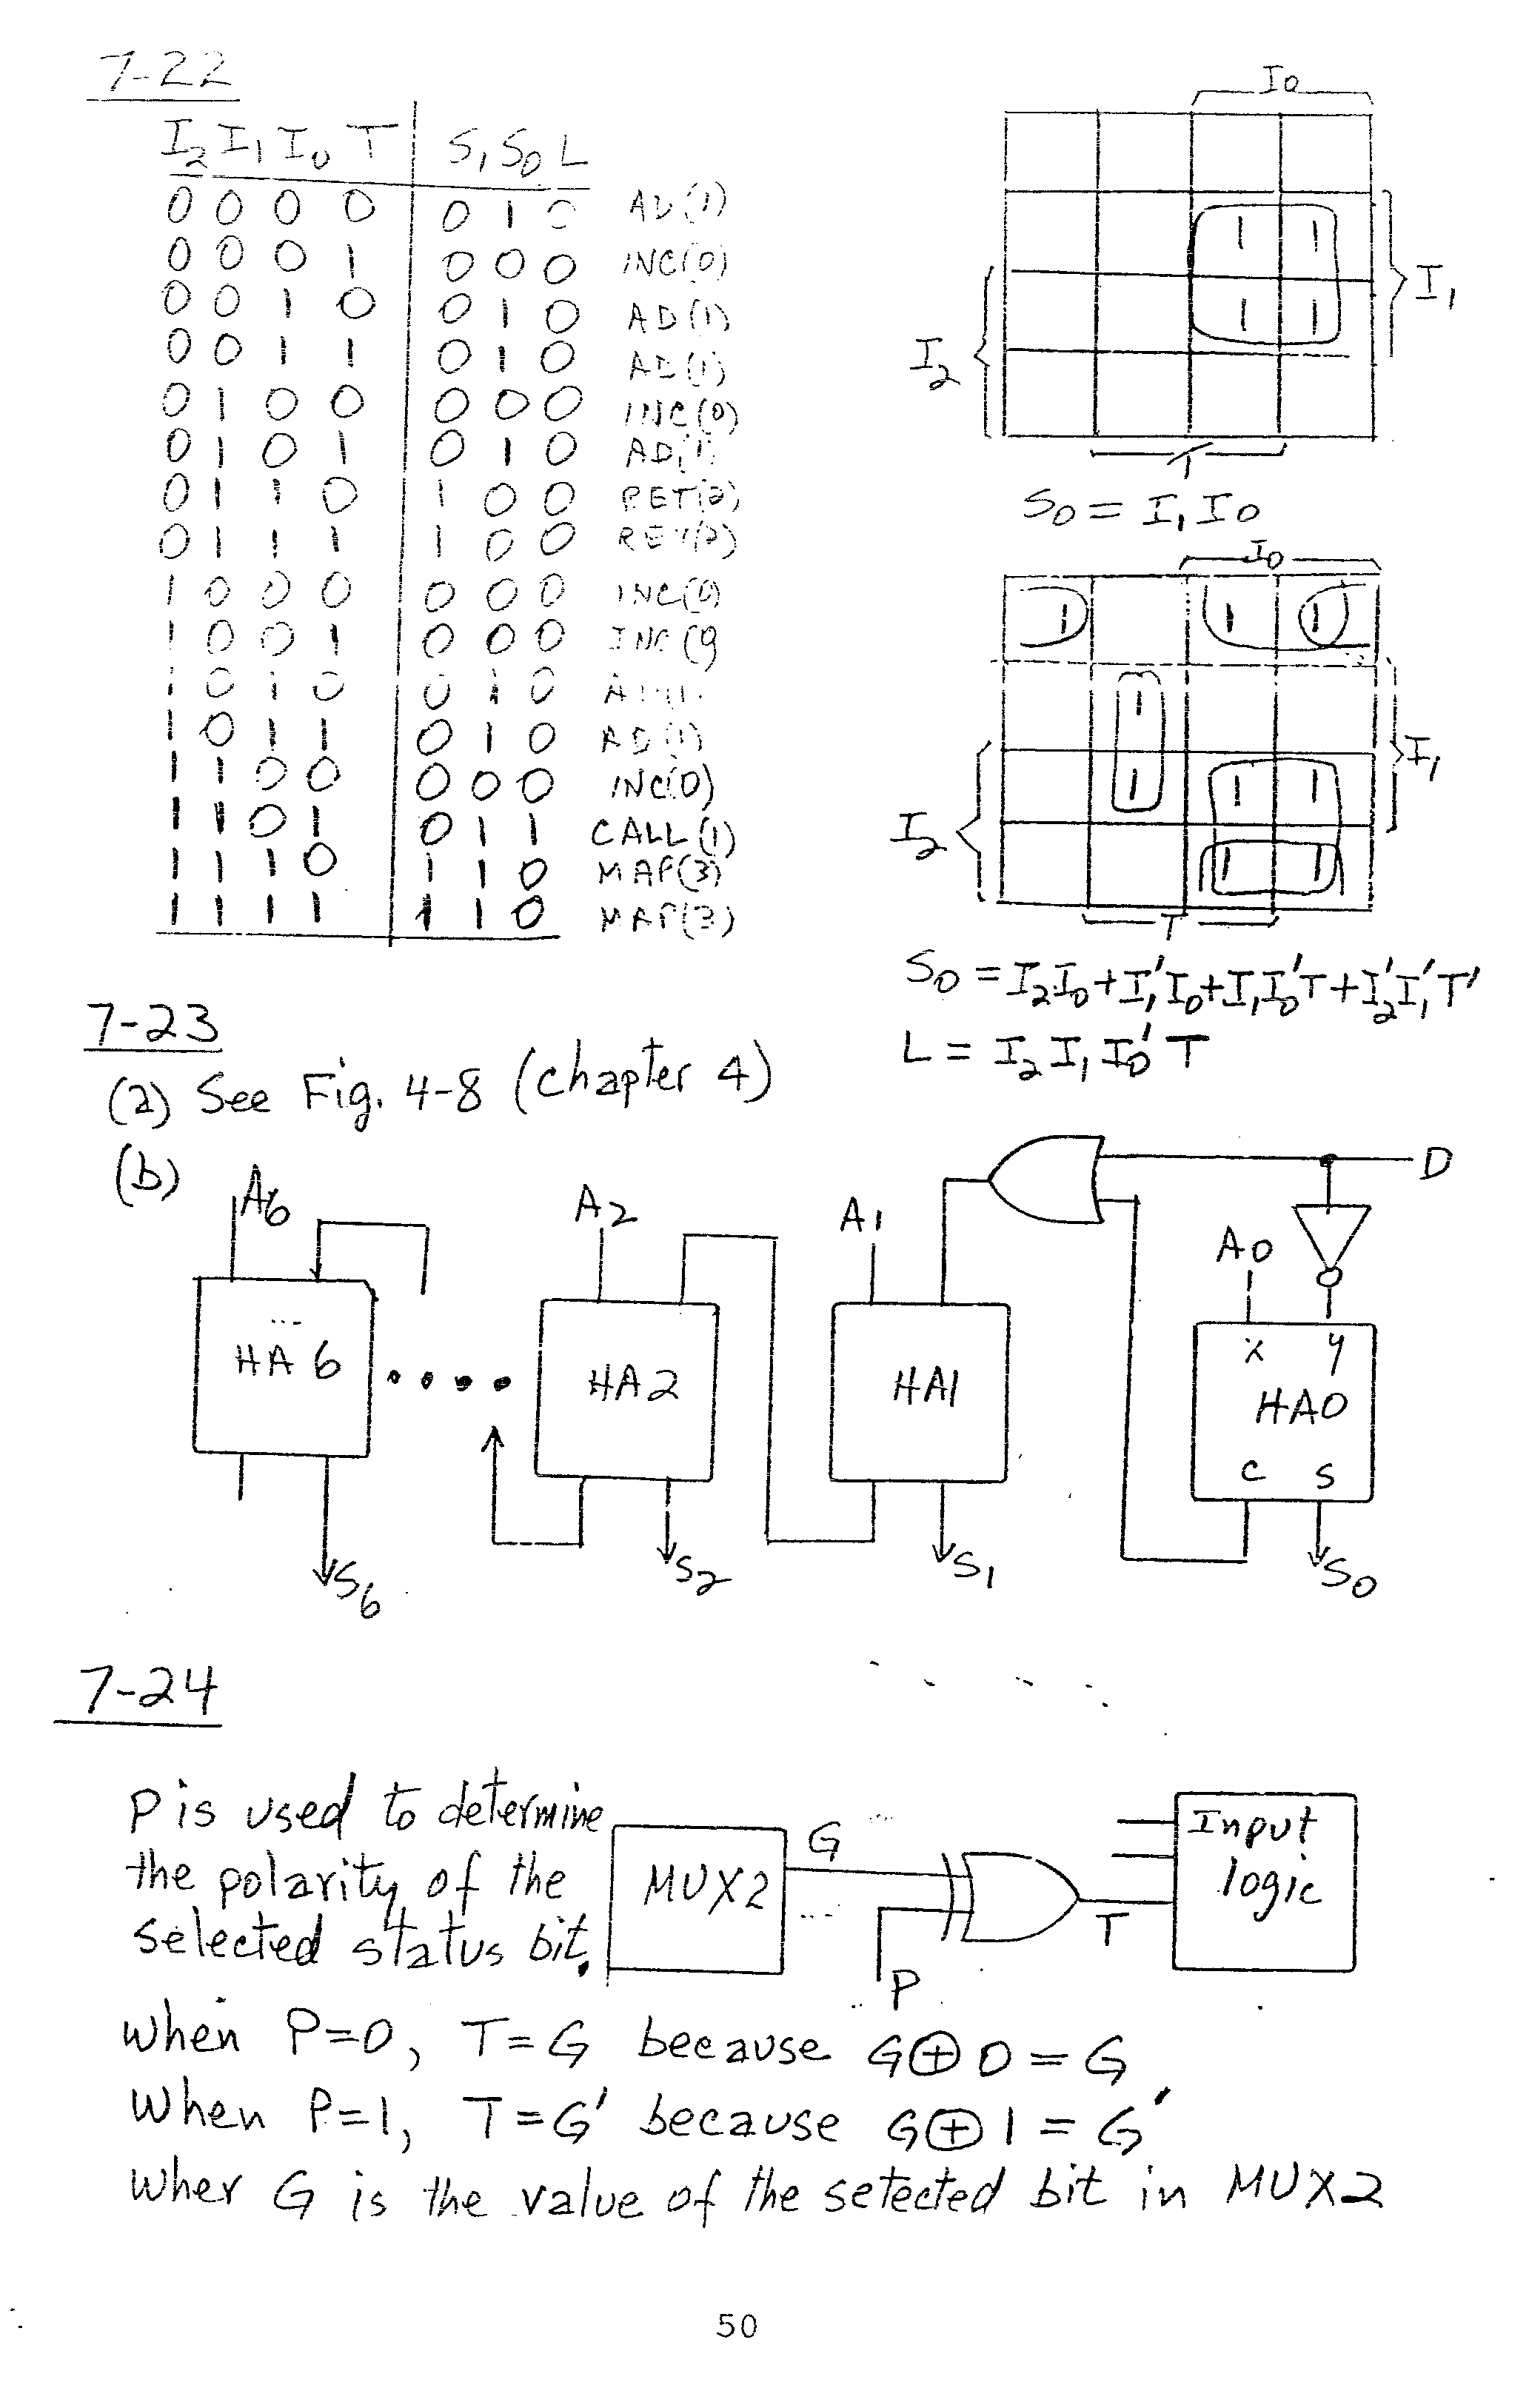 7-22
I2 I1 I0 T S1 S0 L
0 0 0 0 0 1 0 AD(1)
0 0 0 1 0 0 0 INC(0)
0 0 1 0 0 1 0 AD(1)
0 0 1 1 0 1 0 AD(1)
0 1 0 0 0 0 0 INC(0)
0 1 0 1 0 1 0 AD(1)
0 1 1 0 1 0 0 RET(2)
0 1 1 1 1 0 0 RET(2)
1 0 0 0 0 0 0 INC(0)
1 0 0 1 0 0 0 INC(0
1 0 1 0 0 1 0
1 0 1 1 0 1 0 AD(1)
1 1 0 0 0 0 0 INC(0)
1 1 0 1 0 1 1 CALL(1)
1 1 1 0 1 1 0 MAP(3)
1 1 1 1 1 1 0 MAP(3)
I0
1 1
I1
1 1
I2
T
S0 = I1 I0
I0
1 1 1
1
I1
1 1 1
I2
1 1
T
S0 = I2I0 + I1'I0 + I1I0'T + I2'I1'T'
L = I2 I1 I0' T
7-23
(a) See Fig. 4-8 (chapter 4)
(b)
D
A6 A2 A1 A0
x y
HA 6 .... HA2 HA1 HA0
c s
S6 S2 S1 S0
7-24
P is used to determine
the polarity of the
selected status bit.
MUX2 G P T Input
logic
when P=0, T=G because G⊕0 = G
When P=1, T=G' because G⊕1 = G'
Wher G is the value of the setected bit in MUX2
50